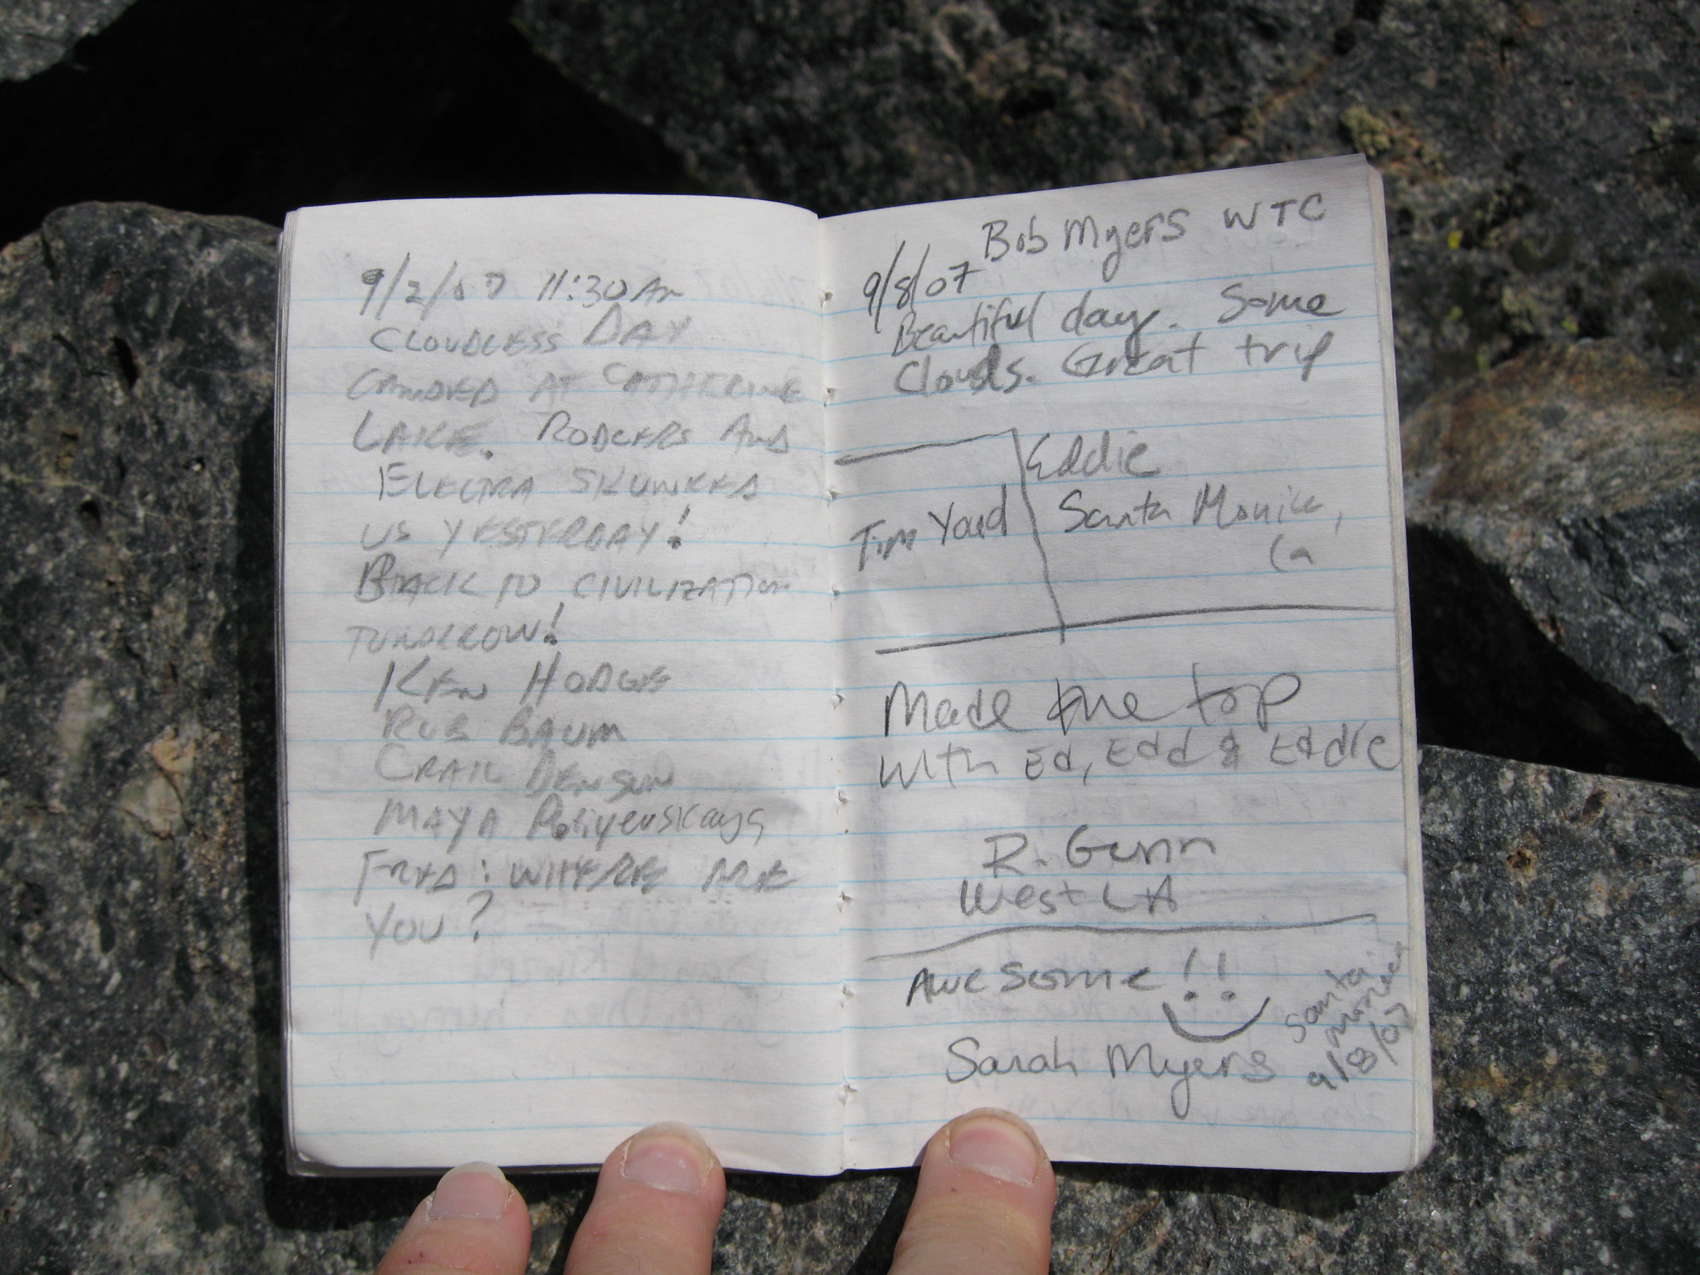 9/2/07 11:30 AM
CLOUDLESS DAY
CAMPED AT CATHERINE
LAKE. RODGERS AND
ELECTRA SKUNKED
US YESTERDAY!
BACK TO CIVILIZATION
TOMORROW!
KEN HODGE
ROB BAUM
CRAIG DENSON
MAYA
FRED: WHERE ARE
YOU?
Bob Myers WTC
9/8/07
Beautiful day. Some
Clouds. Great trip
Eddie
Tim Yard
Santa Monica,
Ca
Made the top
with Ed, Edd & Eddie
R. Gunn
West LA
Awesome!!
Sarah Myers
Santa
Monica
9/8/07